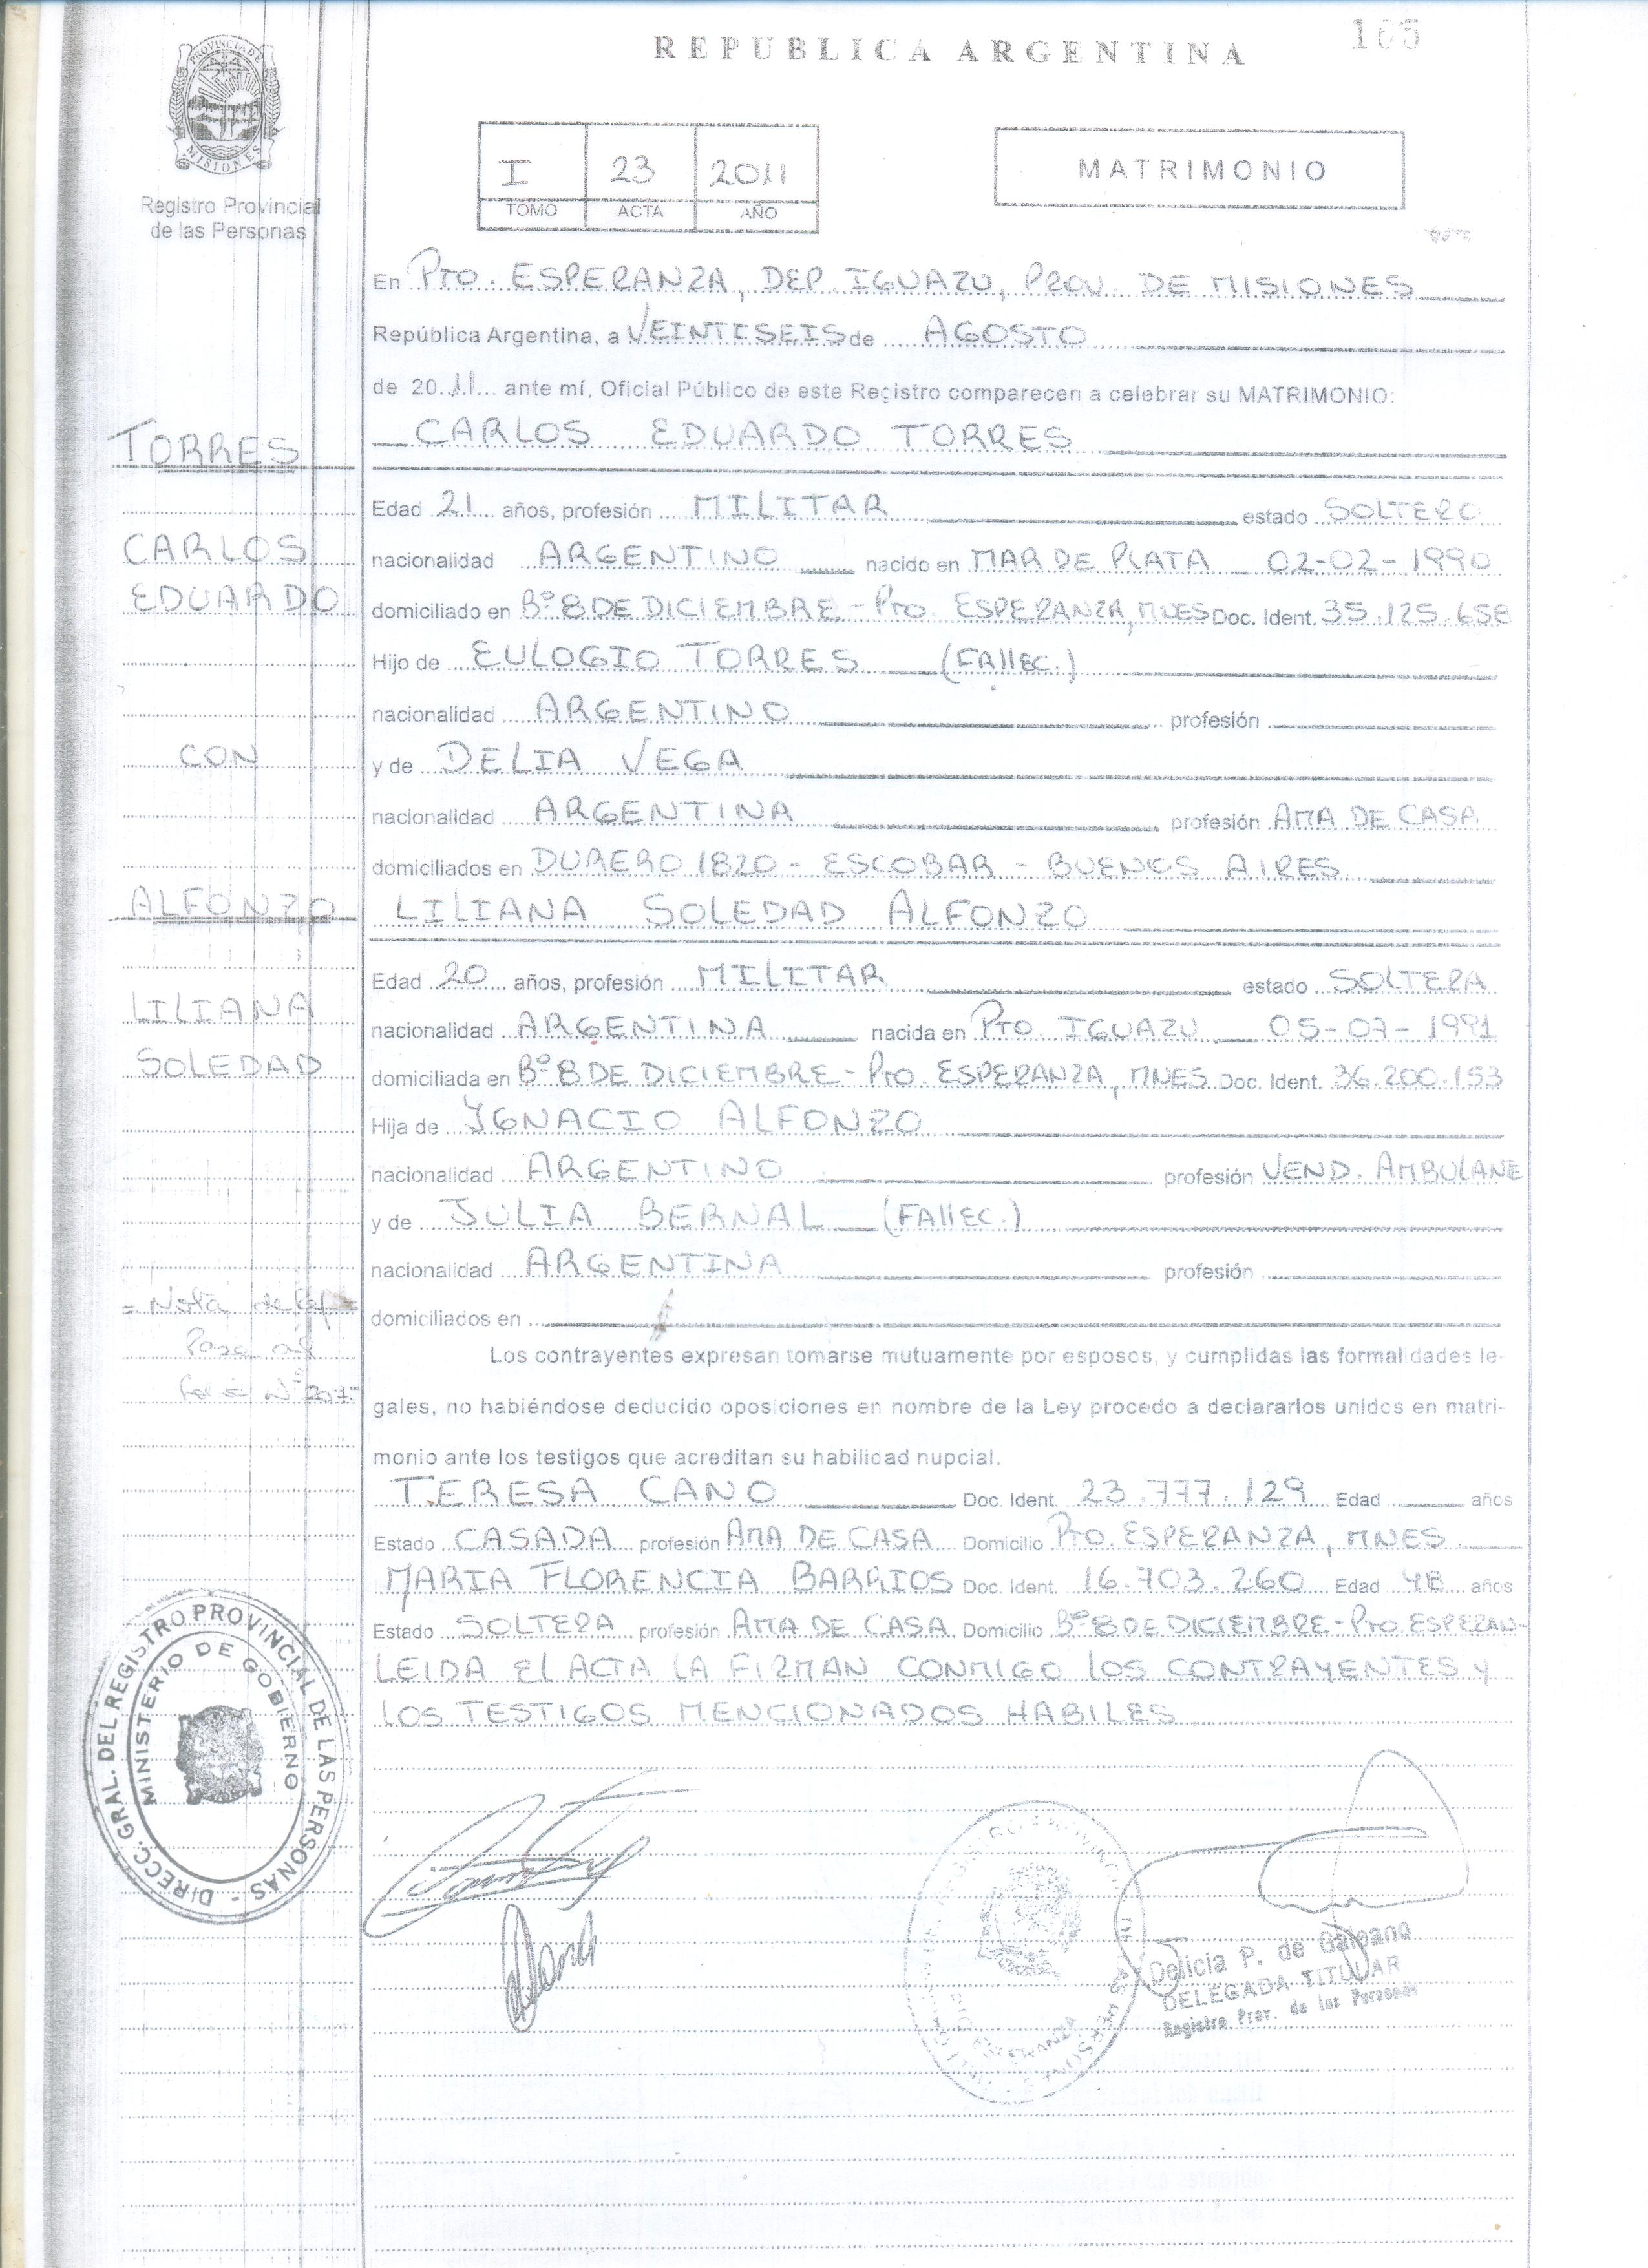 REPUBLICA ARGENTINA
PROVINCIA DE
MISIONES
Registro Provincial
de las Personas
I 23 2011
TOMO ACTA AÑO
MATRIMONIO
En PTO. ESPERANZA, DEP. IGUAZU, PROV. DE MISIONES
República Argentina, a VEINTISEIS de AGOSTO
de 2011 ante mí, Oficial Público de este Registro comparecen a celebrar su MATRIMONIO:
TORRES
CARLOS EDUARDO TORRES
Edad 21 años, profesión MILITAR estado SOLTERO
CARLOS
nacionalidad ARGENTINO nacido en MAR DE PLATA 02-02-1990
EDUARDO
domiciliado en Bº 8 DE DICIEMBRE - PTO. ESPERANZA, MNES Doc. Ident. 35.125.658
Hijo de EULOGIO TORRES (FAllEC.)
nacionalidad ARGENTINO profesión
CON
y de DELIA VEGA
nacionalidad ARGENTINA profesión AMA DE CASA
domiciliados en DURERO 1820 - ESCOBAR - BUENOS AIRES
ALFONZO
LILIANA SOLEDAD ALFONZO
Edad 20 años, profesión MILITAR estado SOLTERA
LILIANA
nacionalidad ARGENTINA nacida en PTO. IGUAZU 05-07-1991
SOLEDAD
domiciliada en Bº 8 DE DICIEMBRE - PTO. ESPERANZA, MNES. Doc. Ident. 36.200.153
Hija de IGNACIO ALFONZO
nacionalidad ARGENTINO profesión VEND. AMBULANE
y de JULIA BERNAL (FAllEC.)
nacionalidad ARGENTINA profesión
= Nota de Ref
domiciliados en
Pasa al
Los contrayentes expresan tomarse mutuamente por esposos, y cumplidas las formalidades le-
folio Nº
gales, no habiéndose deducido oposiciones en nombre de la Ley procedo a declararlos unidos en matri-
monio ante los testigos que acreditan su habilidad nupcial.
TERESA CANO Doc. Ident. 23.777.129 Edad años
Estado CASADA profesión AMA DE CASA Domicilio PTO. ESPERANZA, MNES.
MARIA FLORENCIA BARRIOS Doc. Ident. 16.703.260 Edad 48 años
Estado SOLTERA profesión AMA DE CASA Domicilio Bº 8 DE DICIEMBRE - PTO ESPERAN-
LEIDA El ACTA LA FIRMAN CONMIGO lOS CONTRAYENTES y
lOS TESTIGOS MENCIONADOS HABILES
DIRECC. GRAL. DEL REGISTRO PROVINCIAL DE LAS PERSONAS -
MINISTERIO DE GOBIERNO
Delicia P. de Galeano
DELEGADA TITULAR
Registro Prov. de las Personas